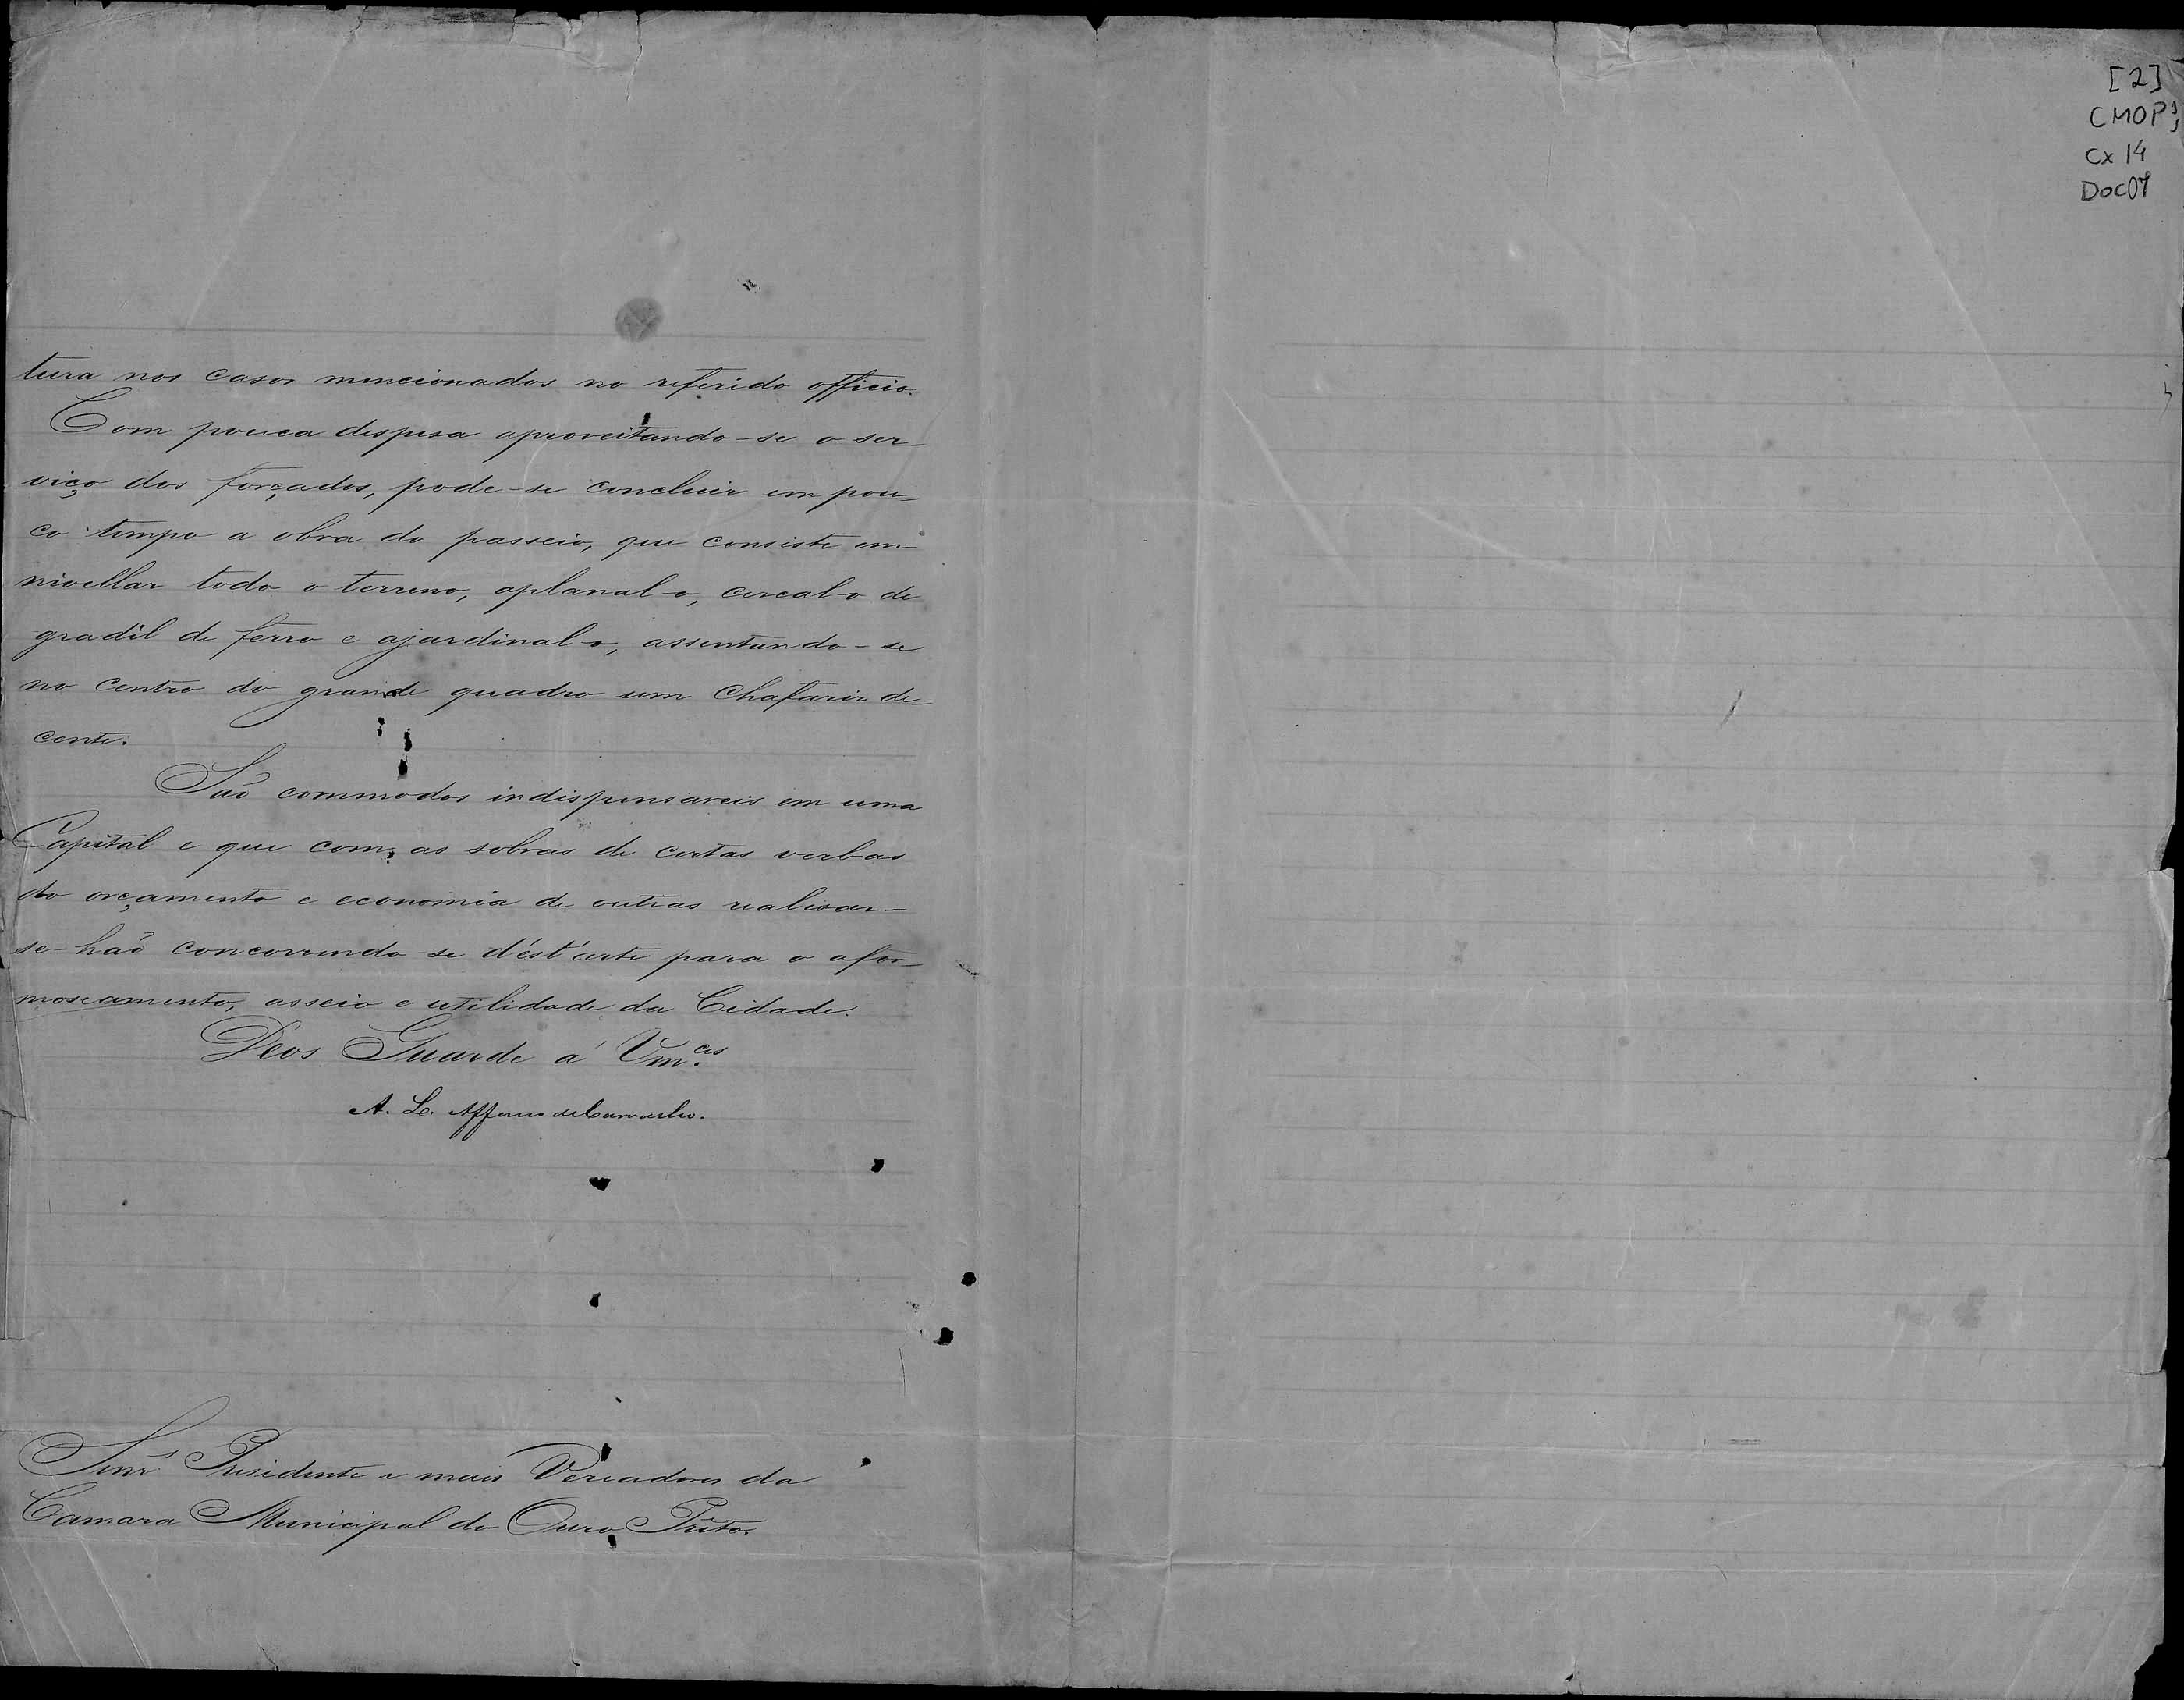 tura nos casos mencionados no referido officio.
Com pouca despesa aproveitando-se o ser-
viço dos forçados, pode-se concluir em pou-
co tempo a obra do passeio, que consiste em
nivellar todo o terreno, aplanal-o, cercal-o de
gradil de ferro e ajardinal-o, assentando-se
no centro do grande quadro um chafariz de-
cente.
São commodos indispensaveis em uma
Capital e que com as sobras de certas verbas
do orçamento e economia de outras realisar-
se-hão concorrendo-se dést'arte para o afor-
moseamento, asseio e utilidade da Cidade.
Deos Guarde á Vm.ces
A. L. Affonso de Carvalho.
Snrs. Presidente e mais Vereadores da
Camara Municipal do Ouro Preto.
[2]
CMOP;
Cx 14
Doc07